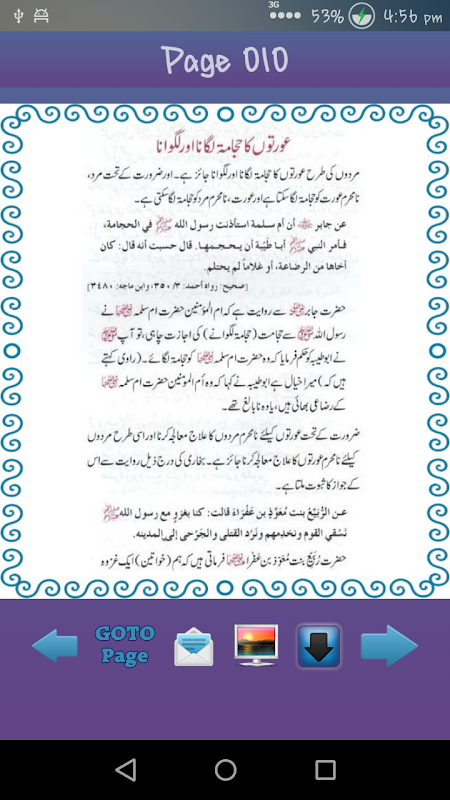 3G
53%
4:56 pm
Page 010
عورتوں کا حجامۃ لگانا اور لگوانا
مردوں کی طرح عورتوں کا حجامۃ لگانا اور لگوانا جائز ہے۔ اور ضرورت کے تحت مرد،
نامحرم عورت کو حجامۃ لگا سکتا ہے اور عورت، نامحرم مرد کو حجامۃ لگا سکتی ہے۔
عن جابر ﷺ أن أم سلمة استأذنت رسول الله ﷺ في الحجامة،
فأمر النبي ﷺ أبا طَيْبة أن يحجمها. قال حسبت أنه قال: كان
أخاها من الرضاعة، أو غلاماً لم يحتلم.
[صحیح: رواہ احمد: ۳/۳۵۰، وابن ماجہ: ۳۴۸۰]
حضرت جابر سے روایت ہے کہ ام المؤمنین حضرت ام سلمہ نے
رسول اللہ ﷺ سے حجامت (حجامۃ لگوانے) کی اجازت چاہی، تو آپ ﷺ
نے ابوطیبہ کو حکم فرمایا کہ وہ حضرت ام سلمہ کو حجامۃ لگائے۔ (راوی کہتے
ہیں کہ) میرا خیال ہے ابوطیبہ نے کہا کہ وہ أم المؤمنین حضرت ام سلمہ
کے رضاعی بھائی ہیں، یا وہ نابالغ تھے۔
ضرورت کے تحت عورتوں کیلئے نامحرم مردوں کا علاج معالجہ کرنا اور اسی طرح مردوں
کیلئے نامحرم عورتوں کا علاج معالجہ کرنا جائز ہے۔ بخاری کی درج ذیل روایت سے اس
کے جواز کا ثبوت ملتا ہے۔
عن الرُّبَيِّع بنت مُعَوِّذ بن عَفْرَاءَ قالت: كنا نغزو مع رسول الله ﷺ
نَسْقي القوم ونخدمهم ونَرُد القتلى والجَرْحى إلى المدينه.
حضرت رُبَیِّع بنت مُعَوّذ بن عفراء فرماتی ہیں کہ ہم (خواتین) ایک غزوہ
GOTO
Page